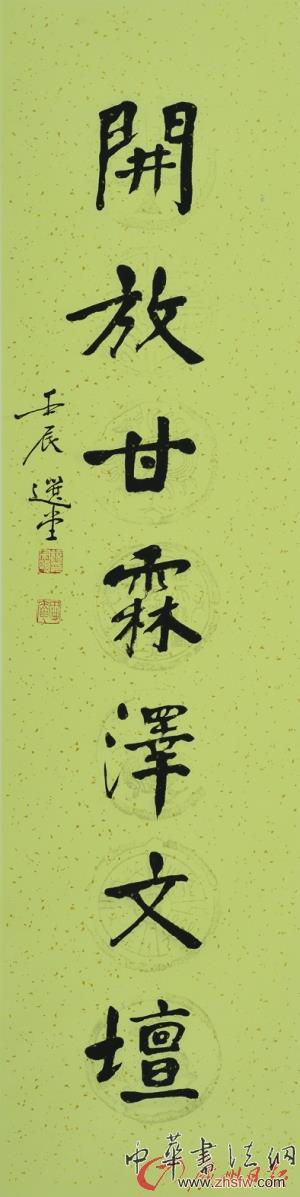 開放甘霖澤文壇
壬辰 選堂
中華書法網
广州日报
www.zhsfw.com